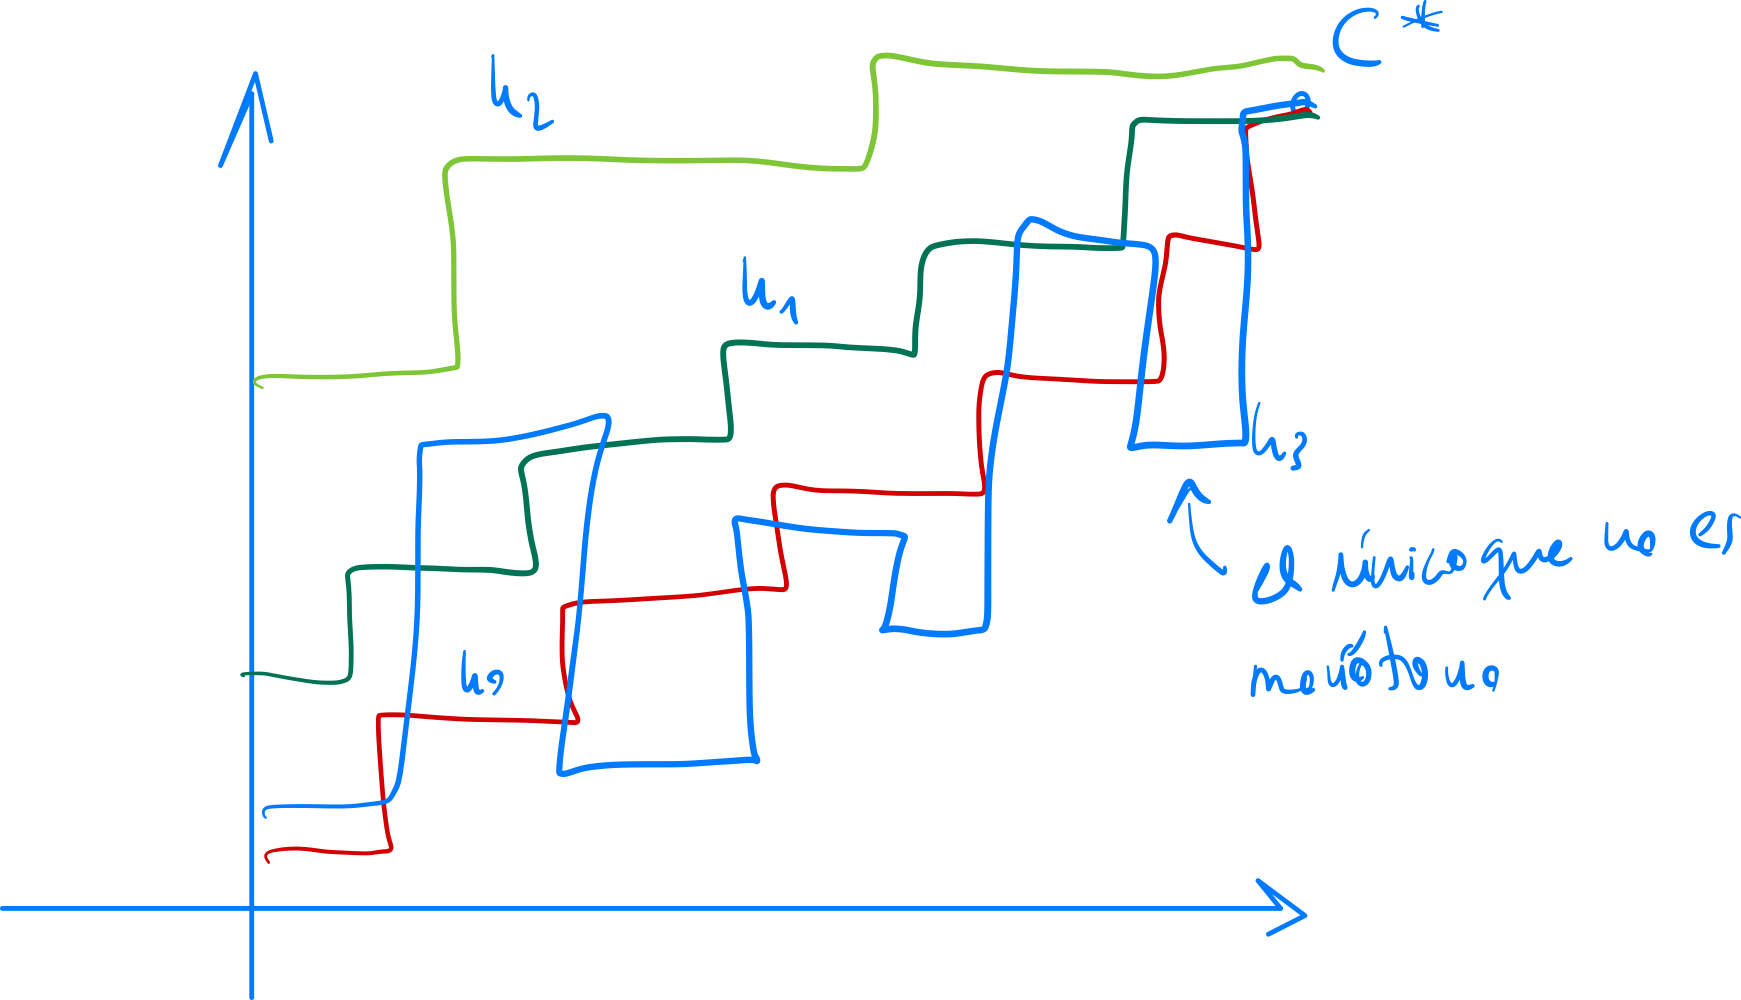 C*
h2
h1
h3
h0
el único que no es
monótono